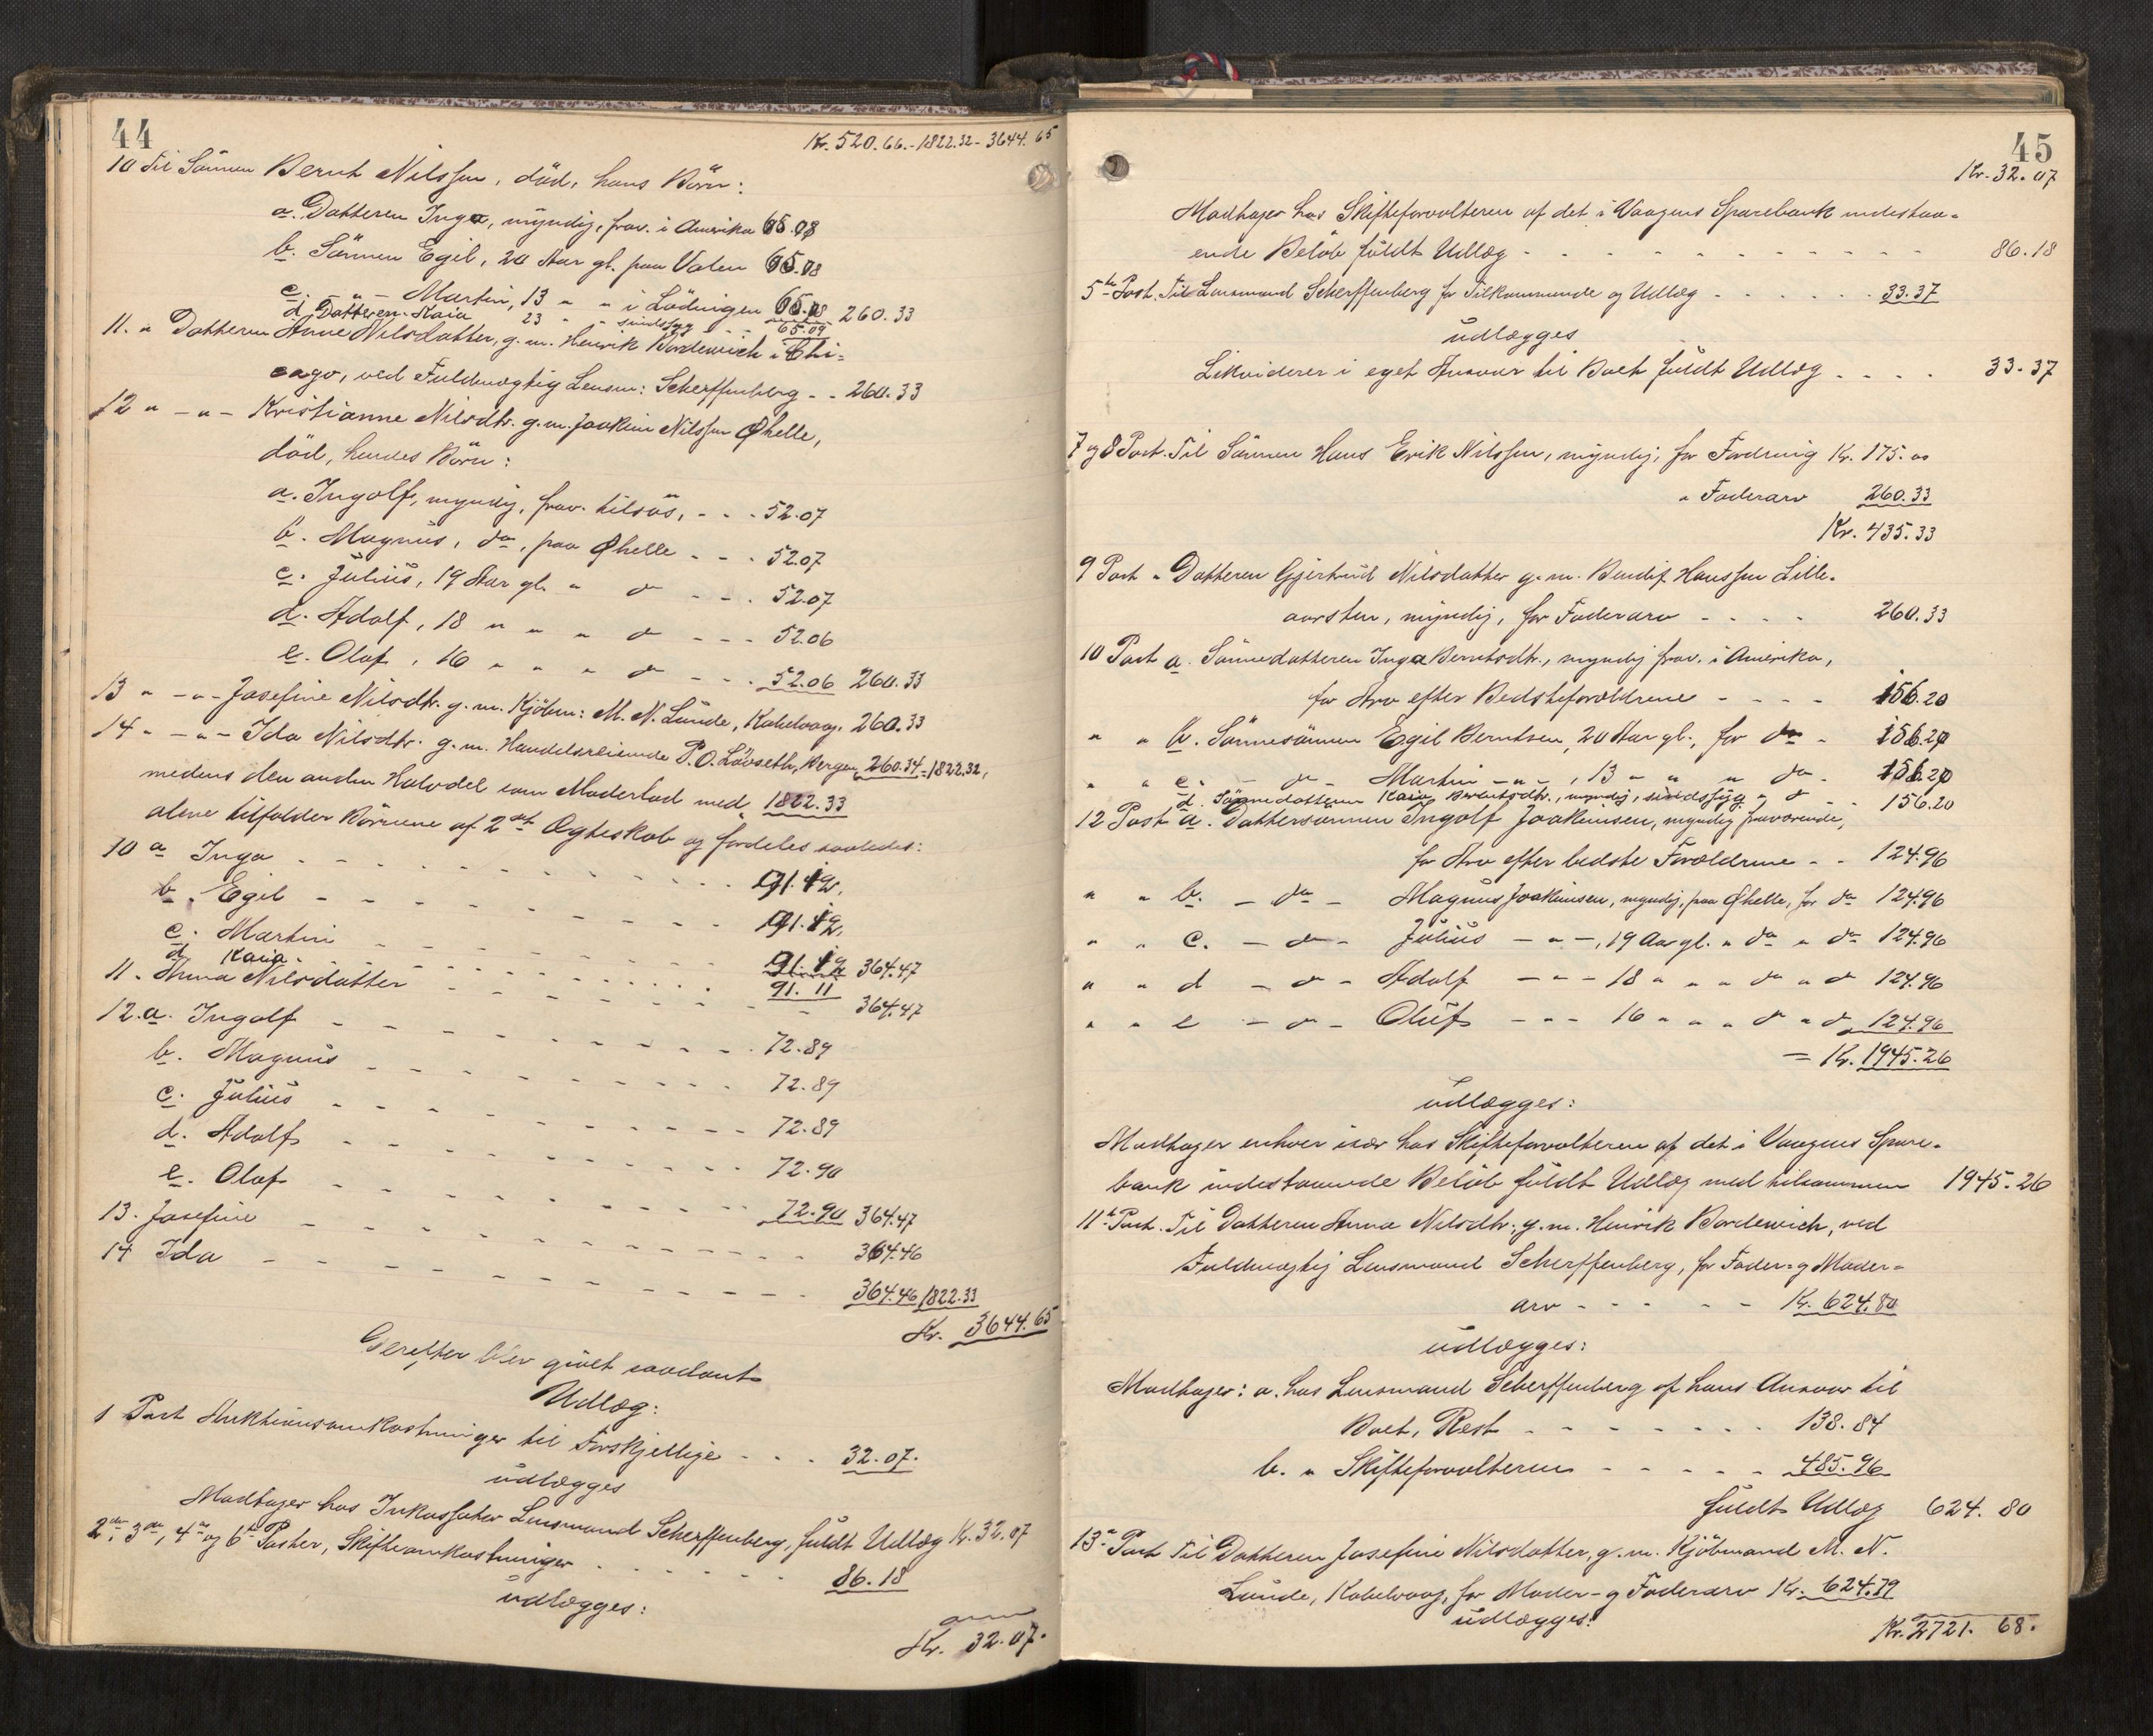 44
Kr. 520.66.-1822.32-3644.65
10 Til Sönnen Bernt Nilssen, död, hans Börn:
a. Datteren Inga, myndig, frav. i Amerika 65.08
b. Sönnen Egil, 20 Aar gl. paa Valen 65.08
c. - " - Martin, 13 " " i Lödingen 65.08 260.33
d. Datteren Kaia 23 " " sindssyg - - 65.09
11. " Datteren Anne Nilsdatter, g. m. Henrik Bordewich i Chi-
cago, ved Fuldmægtig Lensm: Scherffenberg - - 260.33
12 " - " - Kristianne Nilsdtr. g. m. Joakim Nilssen Øhelle,
död, hendes Börn:
a. Ingolf, myndig, frav. tilsös, - - - 52.07
b. Magnus, do, paa Øhelle - - - 52.07
c. Julius, 19 Aar gl. " do - - - 52.07
d. Adolf, 18 " " " do - - - 52.06
e. Olaf, 16 " " " do - - - 52.06 260.33
13 " - " - Josefine Nilsdtr. g. m. Kjöbm: M. N. Lunde, Kabelvaag, 260.33
14 " - " - Ida Nilsdtr. g. m. Handelsreisende P. O. Lövseth, Bergen, 260.34 = 1822.32,
medens den anden Halvdel som Moderlod med " 1822.33
alene tilfalder Börnene af 2det Ægteskab og fordeles saaledes:
10 a Inga - - - - - 91.12,
b. Egil - - - - - 91.12,
c. Martin - - - - - 91.12 364.47
d. Kaia - - - - - 91.11
11. Anna Nilsdatter - - - - - 364.47
12. a. Ingolf - - - - - 72.89
b. Magnus - - - - - 72.89
c. Julius - - - - - 72.89
d. Adolf - - - - - 72.90
e. Olaf - - - - - 72.90 364.47
13. Josefine - - - - - 364.46
14 Ida - - - - - 364.46 1822.33
Kr. 3644.65
Derefter blev givet saadant
Udlæg:
1 Post Auktionsomkostninger til Forskjellige - - - 32.07.
udlægges
Modtager hos Inkassator Lensmand Scherffenberg, fuldt Udlæg Kr. 32.07
2den, 3die, 4de og 6te Poster, Skifteomkostninger - - - - - 86.18
udlægges:
Kr. 32.07.
45
Kr. 32.07
Modtager hos Skifteforvalteren af det i Vaagens Sparebank indestaa-
ende Belöb fuldt Udlæg - - - - - 86.18
5te Post. Til Lensmand Scherffenberg for Tilkommende og Udlæg - - - - - 33.37
udlægges
Likviderer i eget Ansvar til Boet fuldt Udlæg - - - - 33.37
7 og 8 Post. Til Sönnen Hans Erik Nilssen, myndig, for Fordring Kr. 175.00
" Faderarv 260.33
Kr. 435.33
9 Post " Datteren Gjertrud Nilsdatter g. m. Hanssen Lille-
, myndig, for Faderarv - - - - 260.33
10 Post a. Sönnedatteren Inga Berntsdtr., myndig frav. i Amerika,
for Arv efter Bedsteforældrene - - - - 156.20
" " b. Sönnesönnen Egil Berntsen, 20 Aar gl., for do - 156.20
" " c. - do - Martin - " -, 13 " " " do - 156.20
d. Sönnedatteren Kaia Berntsdtr., myndig, sindssyg " do - - 156.20
12 Post a. Dattersönnen Ingolf Joakimsen, myndig fraværende,
for Arv efter bedste Forældrene - - 124.96
" " b. - do - Magnus Joakimsen, myndig, paa Øhelle, for do 124.96
" " c. - do - Julius - " -, 19 Aar gl. " do " do 124.96
" " d - do - Adolf - " - 18 " " " do " do 124.96
" " e - do - Oluf - " - 16 " " " do " do 124.96
= Kr. 1945.26
udlægges:
Modtager enhver især hos Skifteforvalteren af det i Vaagens Spare-
bank indestaaende Belöb fuldt Udlæg med tilsammen 1945.26
11te Post. Til Datteren Anna Nilsdtr. g. m. Henrik Bordewich, ved
Fuldmægtig Lensmand Scherffenberg, for Fader- og Moder-
arv - - - - - Kr. 624.80
udlægges:
Modtager: a. hos Lensmand Scherffenberg af hans Ansvar til
Boet, Rest - - - - - 138.84
b. " Skifteforvalteren - - - - - 485.96
fuldt Udlæg 624.80
13de Post Til Datteren Josefine Nilsdatter, g. m. Kjöbmand M. N.
Lunde, Kabelvaag, for Moder- og Faderarv Kr. 624.79
udlægges:
Kr. 2721.68.